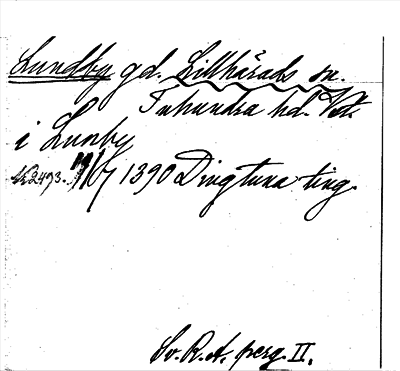 Lundby gd. Lillhärads sn.
Tuhundra hd. Vstm.
i Lunby
N:o 2493. 19/6 1390 Dingtuna ting.
Sv. R. A. perg. II.